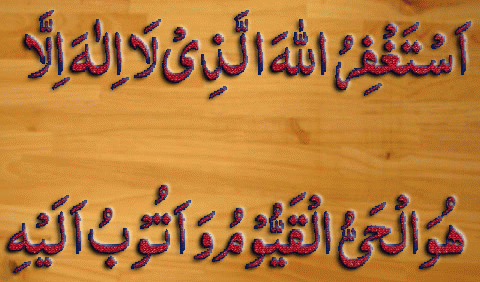 اَسْتَغْفِرُ اللّٰهَ الَّذِىْ لَا اِلٰهَ اِلَّا
هُوَ الْحَىُّ الْقَيُّوْمُ وَ اَتُوْبُ اَلَيْهِ